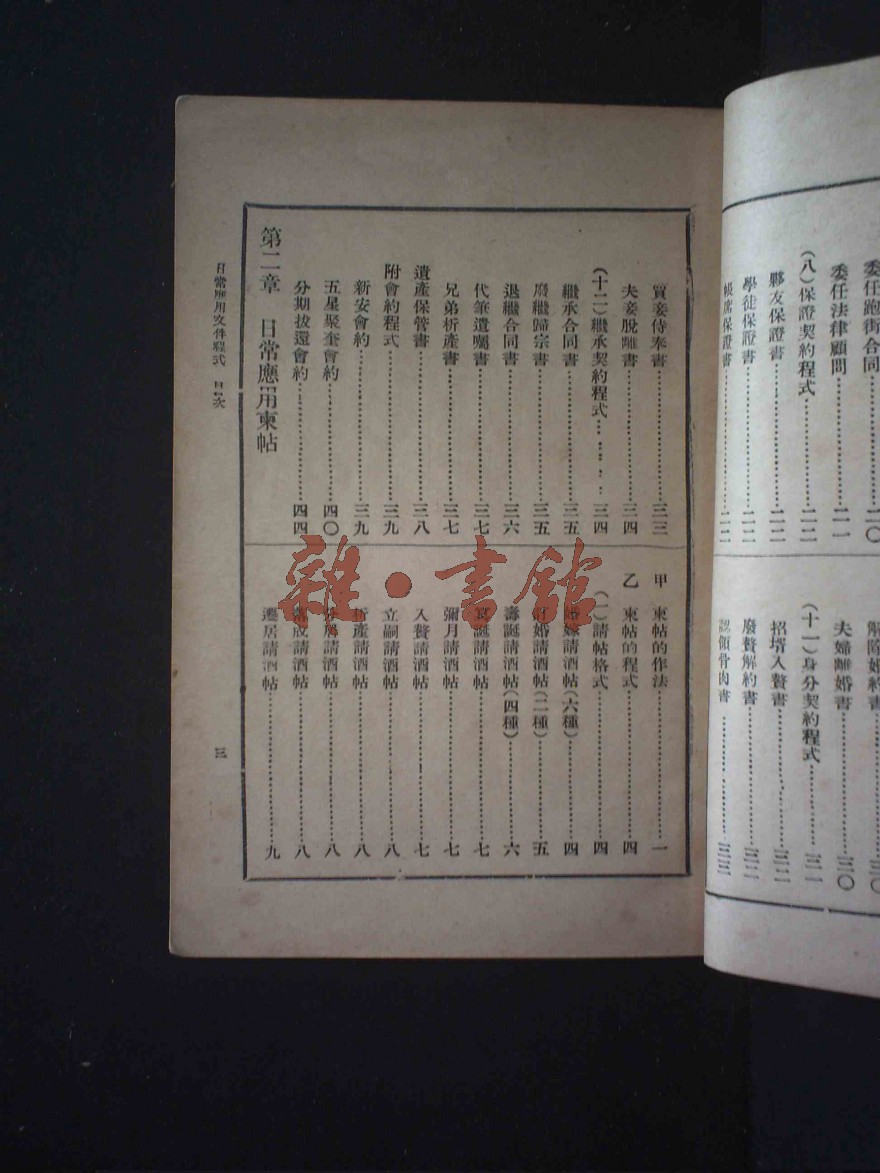 委任跑街合同⋯⋯二〇
委任法律顧問⋯⋯二一
(八)保證契約程式⋯⋯二二
夥友保證書⋯⋯二二
學徒保證書⋯⋯二二
帳席保證書⋯⋯二二
解除婚約書⋯⋯三〇
夫婦離婚書⋯⋯三〇
(十一)身分契約程式⋯⋯三一
招壻入贅書⋯⋯三二
廢贅解約書⋯⋯三二
認領骨肉書⋯⋯三三
買妾侍奉書⋯⋯三三
夫妾脫離書⋯⋯三四
(十二)繼承契約程式⋯⋯三四
繼承合同書⋯⋯三五
廢繼歸宗書⋯⋯三五
退繼合同書⋯⋯三六
代筆遺囑書⋯⋯三七
兄弟析產書⋯⋯三七
遺產保管書⋯⋯三八
附會約程式⋯⋯三九
新安會約⋯⋯三九
五星聚奎會約⋯⋯四〇
分期拔還會約⋯⋯四四
第二章 日常應用柬帖
甲 柬帖的作法⋯⋯一
乙 柬帖的程式⋯⋯四
(一)請帖格式⋯⋯四
婚嫁請酒帖(六種)⋯⋯四
訂婚請酒帖(二種)⋯⋯五
壽誕請酒帖(四種)⋯⋯六
冥誕請酒帖⋯⋯七
彌月請酒帖⋯⋯七
入贅請酒帖⋯⋯七
立嗣請酒帖⋯⋯八
析產請酒帖⋯⋯八
請酒帖⋯⋯八
落成請酒帖⋯⋯八
遷居請酒帖⋯⋯九
日常應用文件程式 目次
三
雜·書館